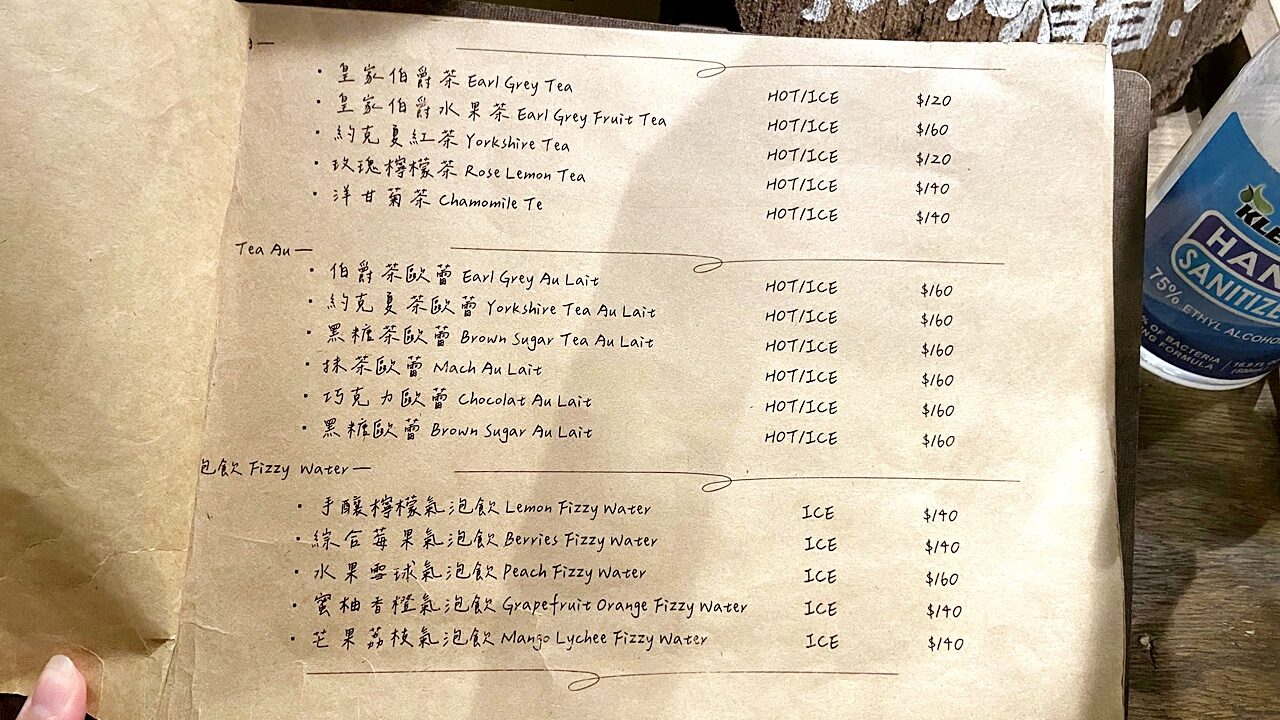 皇家伯爵茶 Earl Grey Tea HOT/ICE $120
皇家伯爵水果茶 Earl Grey Fruit Tea HOT/ICE $160
約克夏紅茶 Yorkshire Tea HOT/ICE $120
玫瑰檸檬茶 Rose Lemon Tea HOT/ICE $140
洋甘菊茶 Chamomile Te HOT/ICE $140
Tea Au—
伯爵茶歐蕾 Earl Grey Au Lait HOT/ICE $160
約克夏茶歐蕾 Yorkshire Tea Au Lait HOT/ICE $160
黑糖茶歐蕾 Brown Sugar Tea Au Lait HOT/ICE $160
抹茶歐蕾 Mach Au Lait HOT/ICE $160
巧克力歐蕾 Chocolat Au Lait HOT/ICE $160
黑糖歐蕾 Brown Sugar Au Lait HOT/ICE $160
泡飲 Fizzy Water—
手釀檸檬氣泡飲 Lemon Fizzy Water ICE $140
綜合莓果氣泡飲 Berries Fizzy Water ICE $140
水果雪球氣泡飲 Peach Fizzy Water ICE $160
蜜柚香橙氣泡飲 Grapefruit Orange Fizzy Water ICE $140
芒果荔枝氣泡飲 Mango Lychee Fizzy Water ICE $140
KLE
HAN
SANITIZE
75% ETHYL ALCOHO
% OF BACTERIA
NG FORMULA